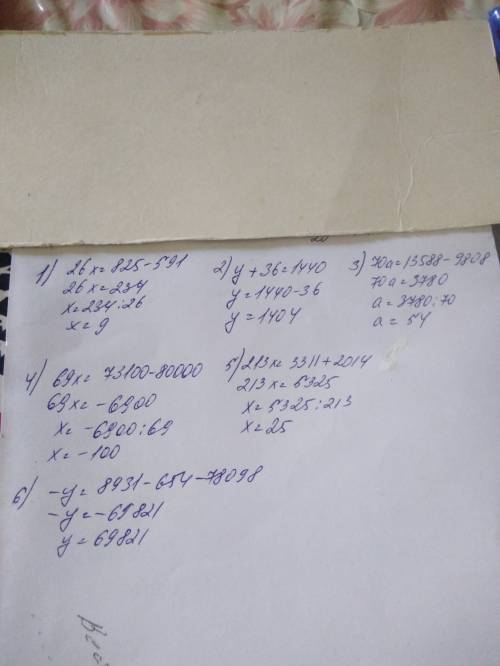 1) 26x=825-591
26x=234
x=234:26
x=9
2) y+36=1440
y=1440-36
y=1404
3) 70a=13588-9808
70a=3780
a=3780:70
a=54
4) 69x=73100-80000
69x=-6900
x=-6900:69
x=-100
5) 213x=3311+2014
213x=5325
x=5325:213
x=25
6) -y=8931-654-78098
-y=-69821
y=69821